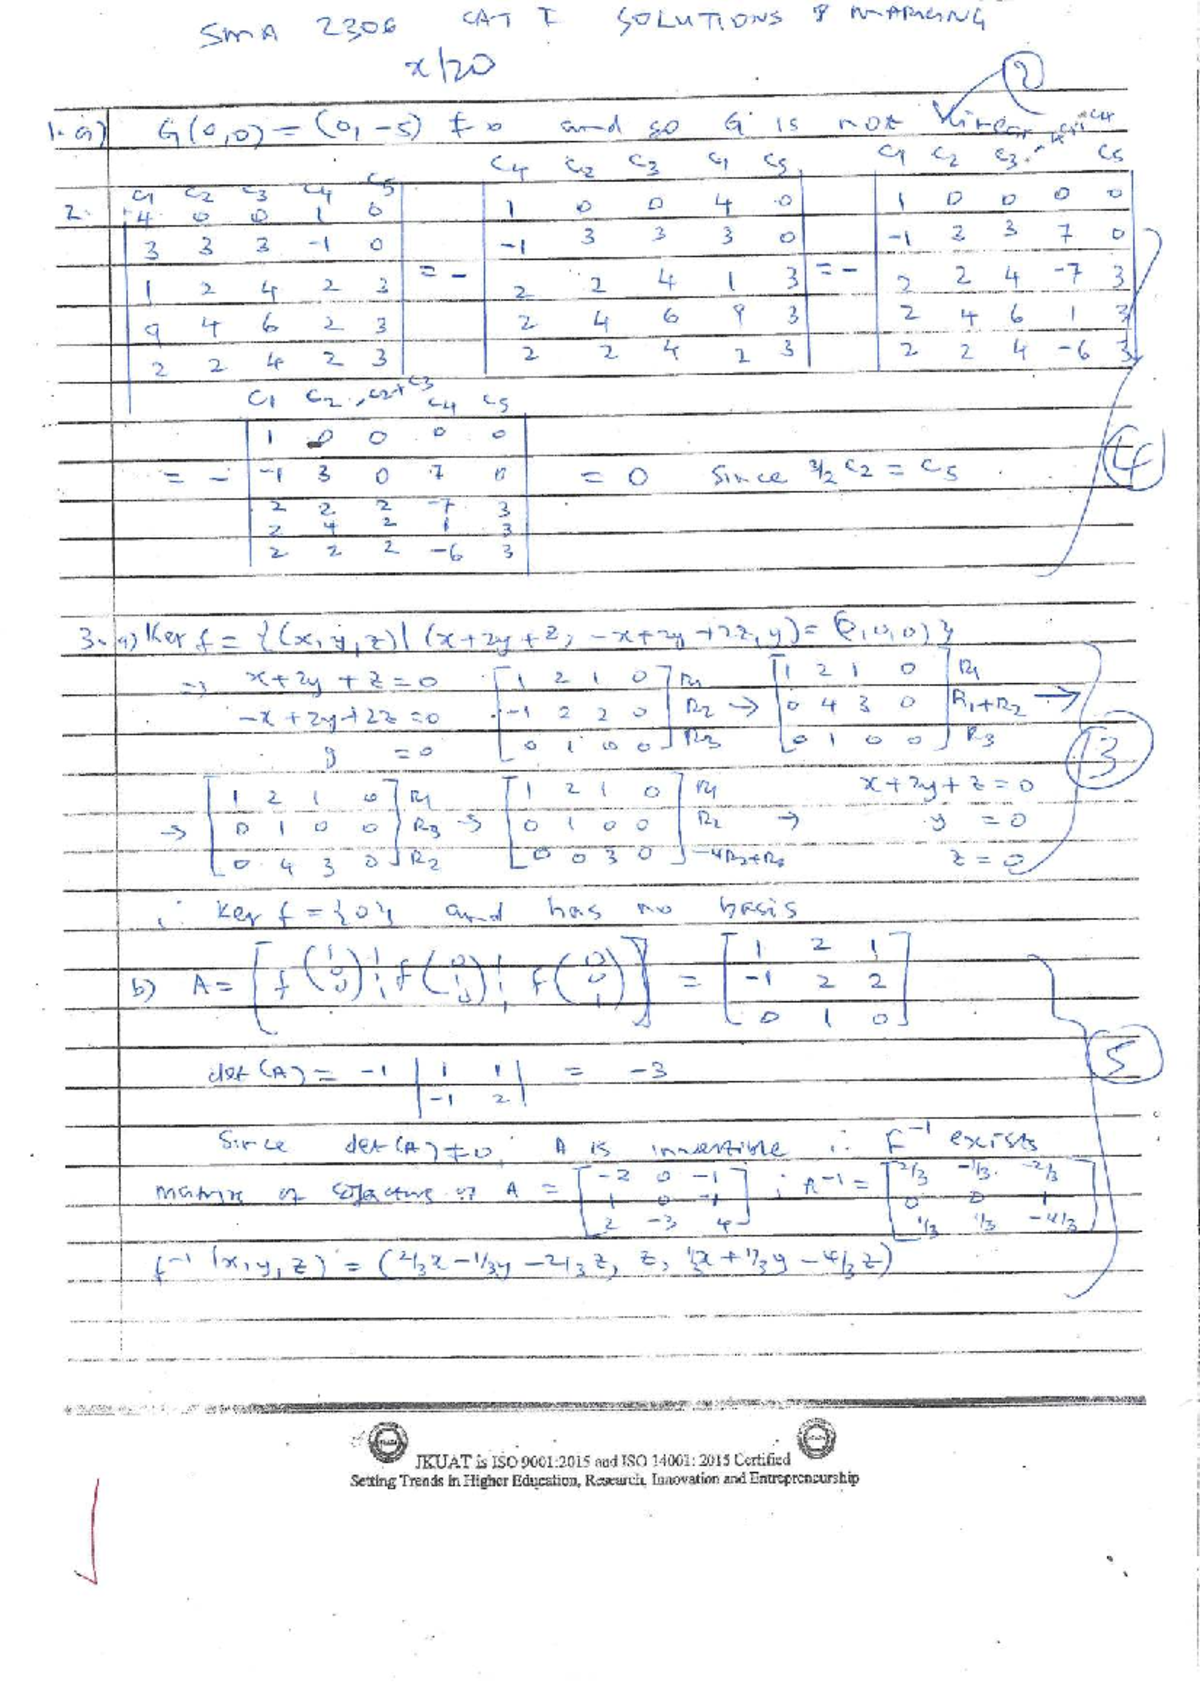 SMA 2306 CAT I SOLUTIONS & MARKING
x/20
2
1. a) G(0,0) = (0, -5) ≠ 0 and so G is not linear
C1 C2 C3 C4 C5
C4 C2 C3 C1 C5
C1 C2 C3 C5
2.
4 0 0 1 0
3 3 3 -1 0
1 2 4 2 3
9 4 6 2 3
2 2 4 2 3
= -
1 0 0 4 0
-1 3 3 3 0
2 2 4 1 3
2 4 6 9 3
2 2 4 2 3
= -
1 0 0 0 0
-1 3 3 7 0
2 2 4 -7 3
2 4 6 1 3
2 2 4 -6 3
C1 C2 , -C2+C3 C4 C5
= -
1 0 0 0 0
-1 3 0 7 0
2 2 2 -7 3
2 4 2 1 3
2 2 2 -6 3
= 0 Since 3/2 C2 = C5
4
3. a) Ker f = {(x, y, z) | (x+2y+z, -x+2y+2z, y) = (0,0,0)}
⇒ x+2y+z=0
-x+2y+2z=0
y =0
1 2 1 0 R1
-1 2 2 0 R2 →
0 1 0 0 R3
1 2 1 0 R1
0 4 3 0 R1+R2 →
0 1 0 0 R3
3
→
1 2 1 0 R1
0 1 0 0 R3 →
0 4 3 0 R2
1 2 1 0 R1
0 1 0 0 R2 →
0 0 3 0 -4R2+R3
x+2y+z=0
y =0
z=0
∴ Ker f = {0} and has no basis
b) A = [f(1 0 0) ¦ f(0 1 0) ¦ f(0 0 1)] =
1 2 1
-1 2 2
0 1 0
det(A) = -1 | 1 1 | = -3
| -1 2 |
5
Since det(A) ≠ 0, A is invertible ∴ f⁻¹ exists
matrix of cofactors of A =
-2 0 -1
1 0 -1
2 -3 4
; A⁻¹ =
2/3 -1/3 -2/3
0 0 1
1/3 1/3 -4/3
f⁻¹(x, y, z) = (2/3x - 1/3y - 2/3z, z, 1/3x + 1/3y - 4/3z)
JKUAT is ISO 9001:2015 and ISO 14001: 2015 Certified
Setting Trends in Higher Education, Research, Innovation and Entrepreneurship